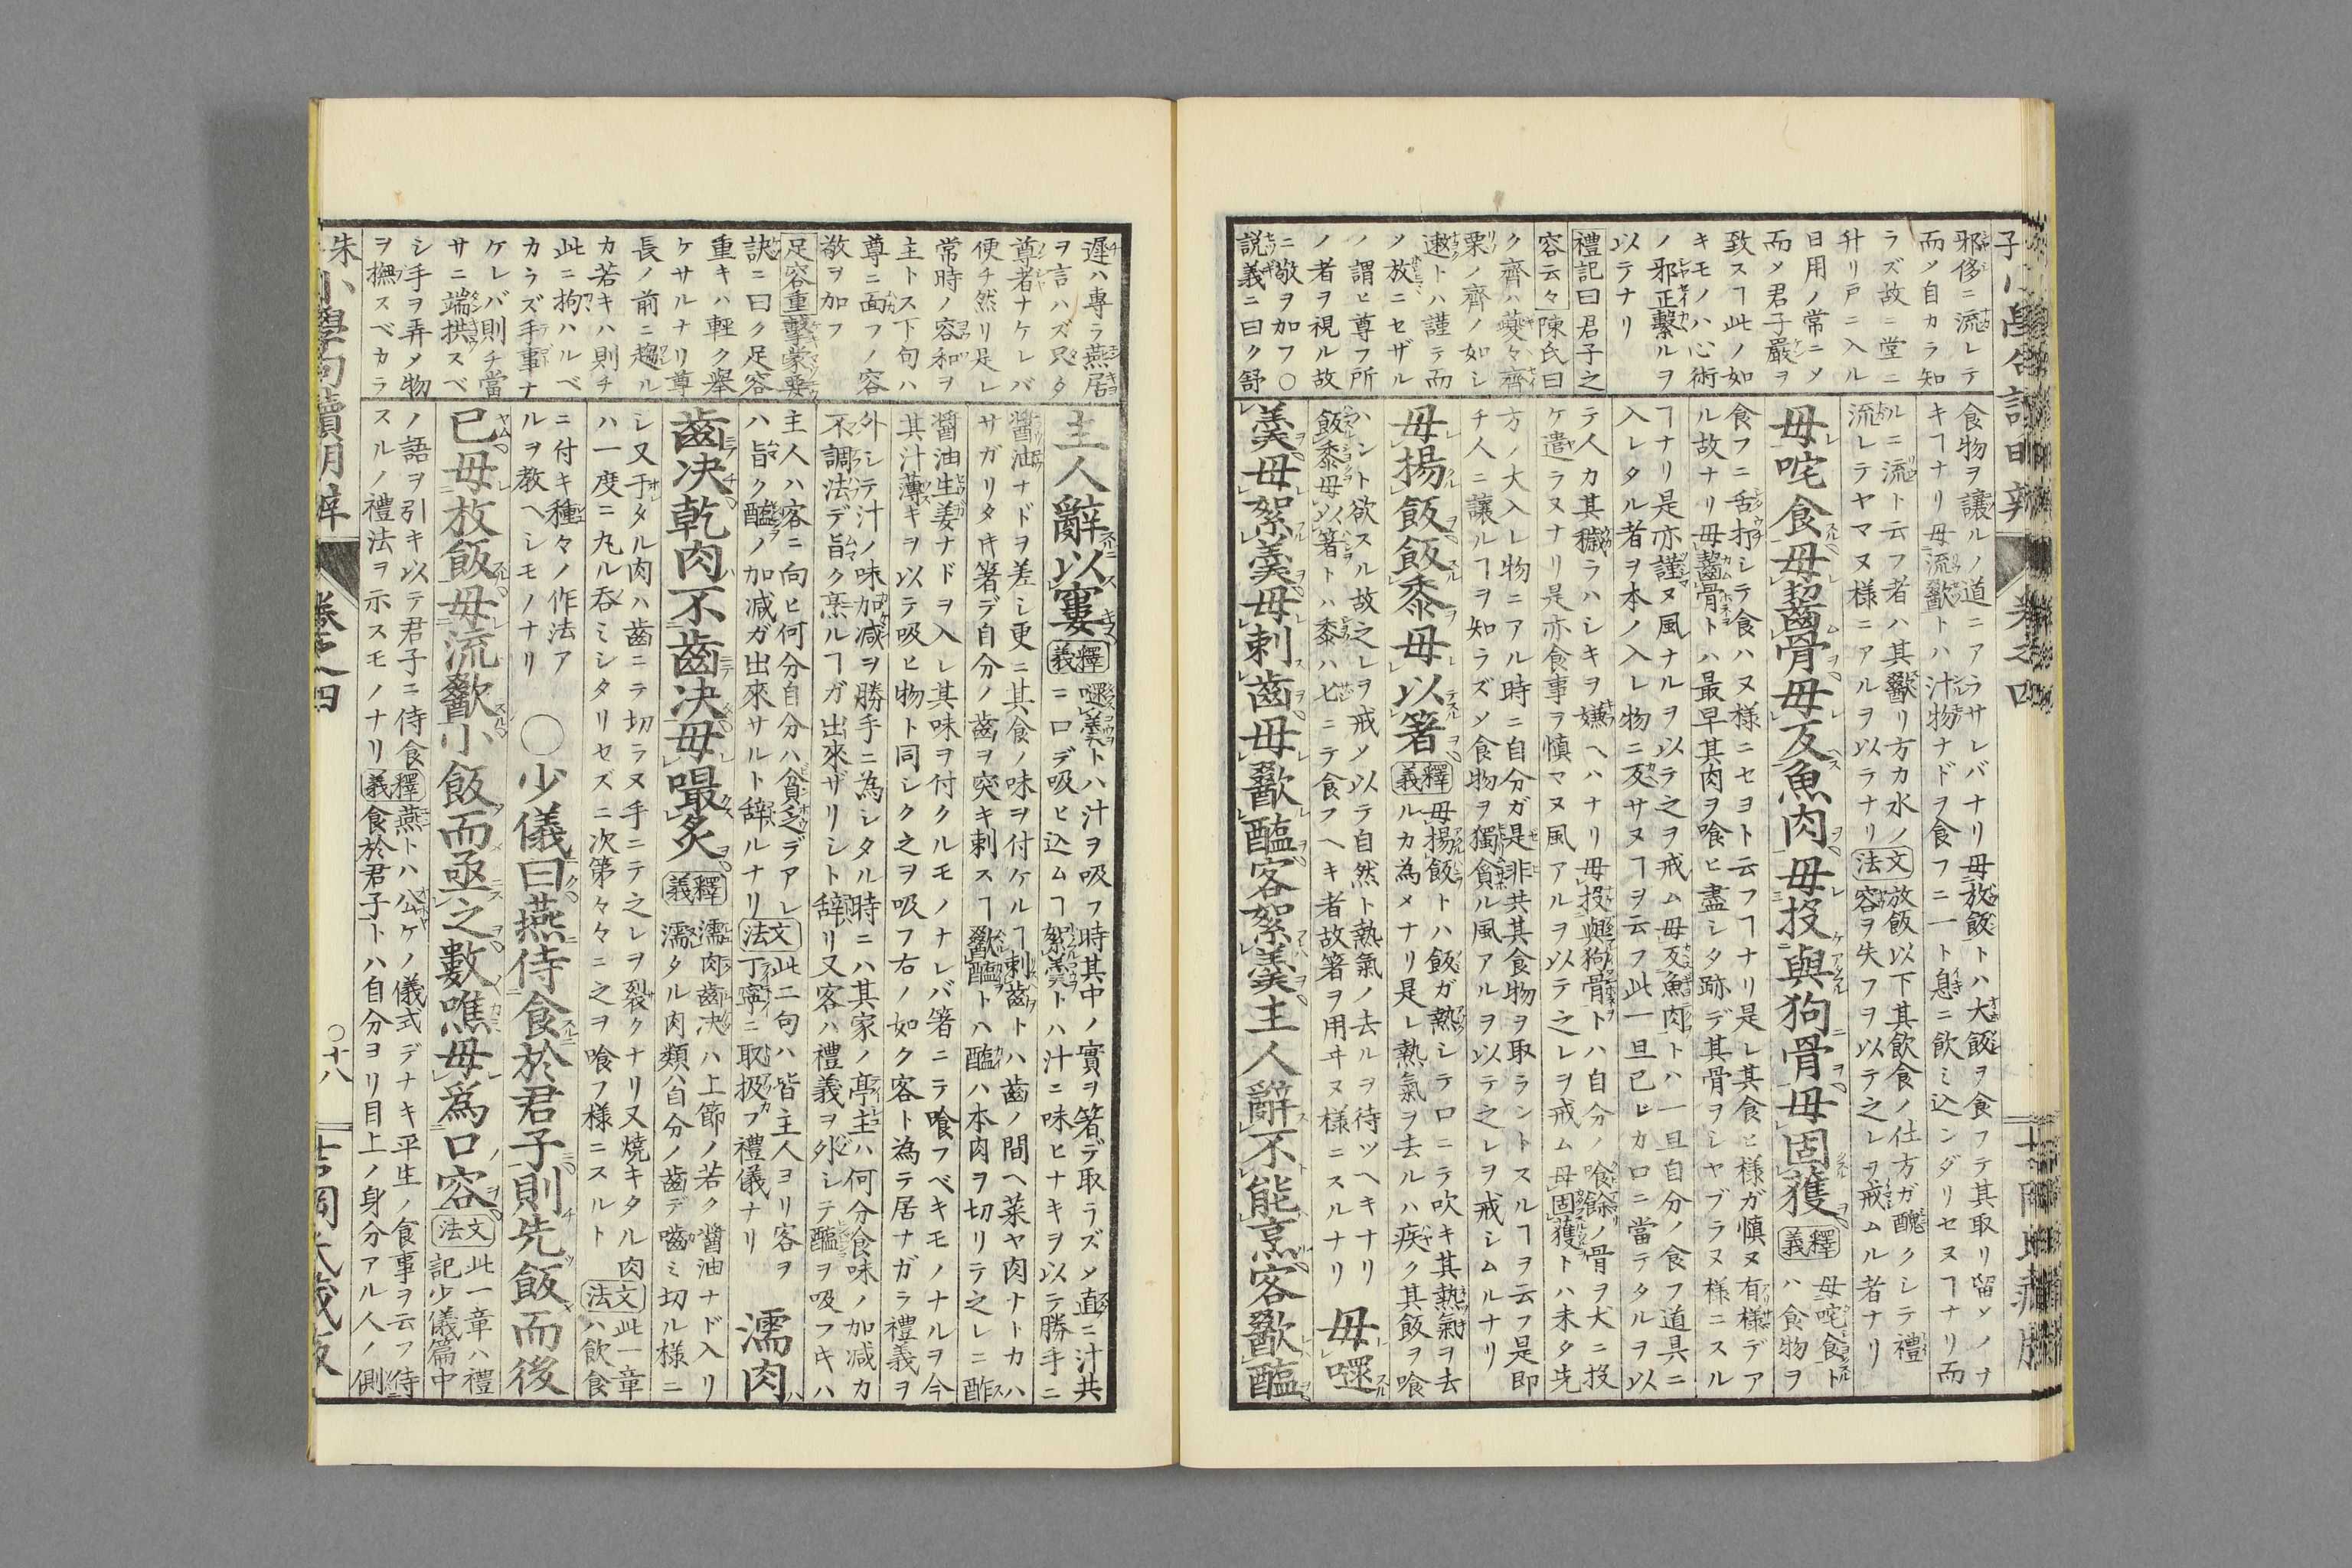 邪侈ニ流レテ
而メ自カラ知
ラズ故ニ堂ニ
升リ戸ニ入ル
日用ノ常ニメ
而メ君子嚴ヲ
致スヿ此ノ如
キモノハ心術
ノ邪正繫ルヲ
以テナリ
禮記曰君子之
容云々陳氏曰
ク齊ハ夔々齊
栗ノ齊ノ如シ
遬トハ謹テ而
メ放ニセザル
ノ謂ヒ尊フ所
ノ者ヲ視ル故
ニ敬ヲ加フ○
説義ニ曰ク舒
食物ヲ讓ルノ道ニアラサレバナリ毋放飯トハ大飯ヲ食フテ其取リ留メノナ
キヿナリ毋流歠トハ汁物ナドヲ食フニ一ト息ニ飲ミ込ンダリセヌヿナリ而
ルニ流ト云フ者ハ其歠リ方カ水ノ
流レテヤマヌ様ニアルヲ以ラナリ
文法
放飯以下其飲食ノ仕方ガ醜クシテ禮
容ヲ失フヲ以テ之レヲ戒ムル者ナリ
毋咤食毋齧骨毋反魚肉毋投與狗骨毋固獲
釋義
毋咤食ト
ハ食物ヲ
食フニ舌打シテ食ハヌ様ニセヨト云フヿナリ是レ其食ヒ様ガ慎ヌ有様デア
ル故ナリ毋齧骨トハ最早其肉ヲ喰ヒ盡シタ跡デ其骨ヲシヤブラヌ様ニスル
ヿナリ是亦謹ヌ風ナルヲ以ラ之ヲ戒ム毋反魚肉トハ一旦自分ノ食フ道具ニ
入レタル者ヲ本ノ入レ物ニ反サヌヿヲ云フ此一旦已レカ口ニ當テタルヲ以
テ人カ其穢ラハシキヲ嫌ヘハナリ毋投與狗骨トハ自分ノ喰餘ノ骨ヲ犬ニ投
ケ遣ラヌナリ是亦食事ヲ慎マヌ風アルヲ以テ之レヲ戒ム毋固獲トハ未タ先
方ノ大入レ物ニアル時ニ自分ガ是非共其食物ヲ取ラントスルヿヲ云フ是即
チ人ニ讓ルヿヲ知ラズメ食物ヲ獨貪ル風アルヲ以テ之レヲ戒シムルナリ
毋揚飯飯黍毋以箸
釋義
毋揚飯トハ飯ガ熱シテ口ニテ吹キ其熱氣ヲ去
ルカ為メナリ是レ熱氣ヲ去ルハ疾ク其飯ヲ喰
ハント欲スル故之レヲ戒メ以ラ自然ト熱氣ノ去ルヲ待ツヘキナリ
飯黍毋以箸トハ黍ハ匕ニテ食フヘキ者故箸ヲ用ヰヌ様ニスルナリ
毋嚃
羹毋絮羹毋刺齒毋歠醢客絮羹主人辭不能烹客歠醢
遲ハ專ラ燕居
ヲ言ハズ只タ
尊者ナケレバ
便チ然リ是レ
常時ノ容和ヲ
主トス下句ハ
尊ニ面フノ容
敬ヲ加フ
足容重擊蒙要
訣ニ曰ク足容
重キハ輕ク舉
ケサルナリ尊
長ノ前ニ趨ル
カ若キハ則チ
此ニ拘ハルベ
カラズ手事ナ
ケレバ則チ當
サニ端拱スベ
シ手ヲ弄メ物
ヲ撫スベカラ
主人辭以窶
釋義
嚃羹トハ汁ヲ吸フ時其中ノ實ヲ箸デ取ラズメ直ニ汁共
ニ口デ吸ヒ込ムヿ絮羹トハ汁ニ味ヒナキヲ以テ勝手ニ
醬油ナドヲ差シ更ニ其食ノ味ヲ付ケルヿ刺齒トハ齒ノ間ヘ菜ヤ肉ナトカハ
サガリタキ箸デ自分ノ齒ヲ突キ刺スヿ歠醢トハ醢ハ本肉ヲ切リテ之レニ酢
醬油生姜ナドヲ入レ其味ヲ付クルモノナレバ箸ニラ喰フベキモノナルヲ今
其汁薄キヲ以テ吸ヒ物ト同シク之ヲ吸フ右ノ如ク客ト為テ居ナガラ禮義ヲ
外シテ汁ノ味加减ヲ勝手ニ為シタル時ニハ其家ノ亭主ハ何分食味ノ加减カ
不調法デ旨ク烹ルヿガ出來ザリシト辞リ又客ハ禮義ヲ外シテ醢ヲ吸フキハ
主人ハ客ニ向ヒ何分自分ハ貧乏デアレ
ハ旨ク醢ノ加减ガ出來サルト辞ルナリ
文法
此二句ハ皆主人ヨリ客ヲ
丁寧ニ取扱フ禮儀ナリ
濡肉
齒决乾肉不齒决毋嘬炙
釋義
濡肉齒决ハ上節ノ若ク醬油ナド入リ
濡タル肉類ハ自分ノ齒デ嚙ミ切ル様ニ
シ又干タル肉ハ齒ニラ切ラヌ手ニテ之レヲ裂クナリ又燒キタル肉
ハ一度ニ丸ル呑ミシタリセズニ次第々々ニ之ヲ喰フ様ニスルト
文法
此一章
ハ飲食
ニ付キ種々ノ作法ア
ルヲ教ヘシモノナリ
○少儀曰燕侍食於君子則先飯而後
已毋放飯毋流歠小飯而亟之數噍毋爲口容
文法
此一章ハ禮
記少儀篇中
ノ語ヲ引キ以テ君子ニ侍食
スルノ禮法ヲ示スモノナリ
釋義
燕トハ公ケノ儀式デナキ平生ノ食事ヲ云フ侍
食於君子トハ自分ヨリ目上ノ身分アル人ノ側
朱子小學句讀明辨
卷之四
○十八